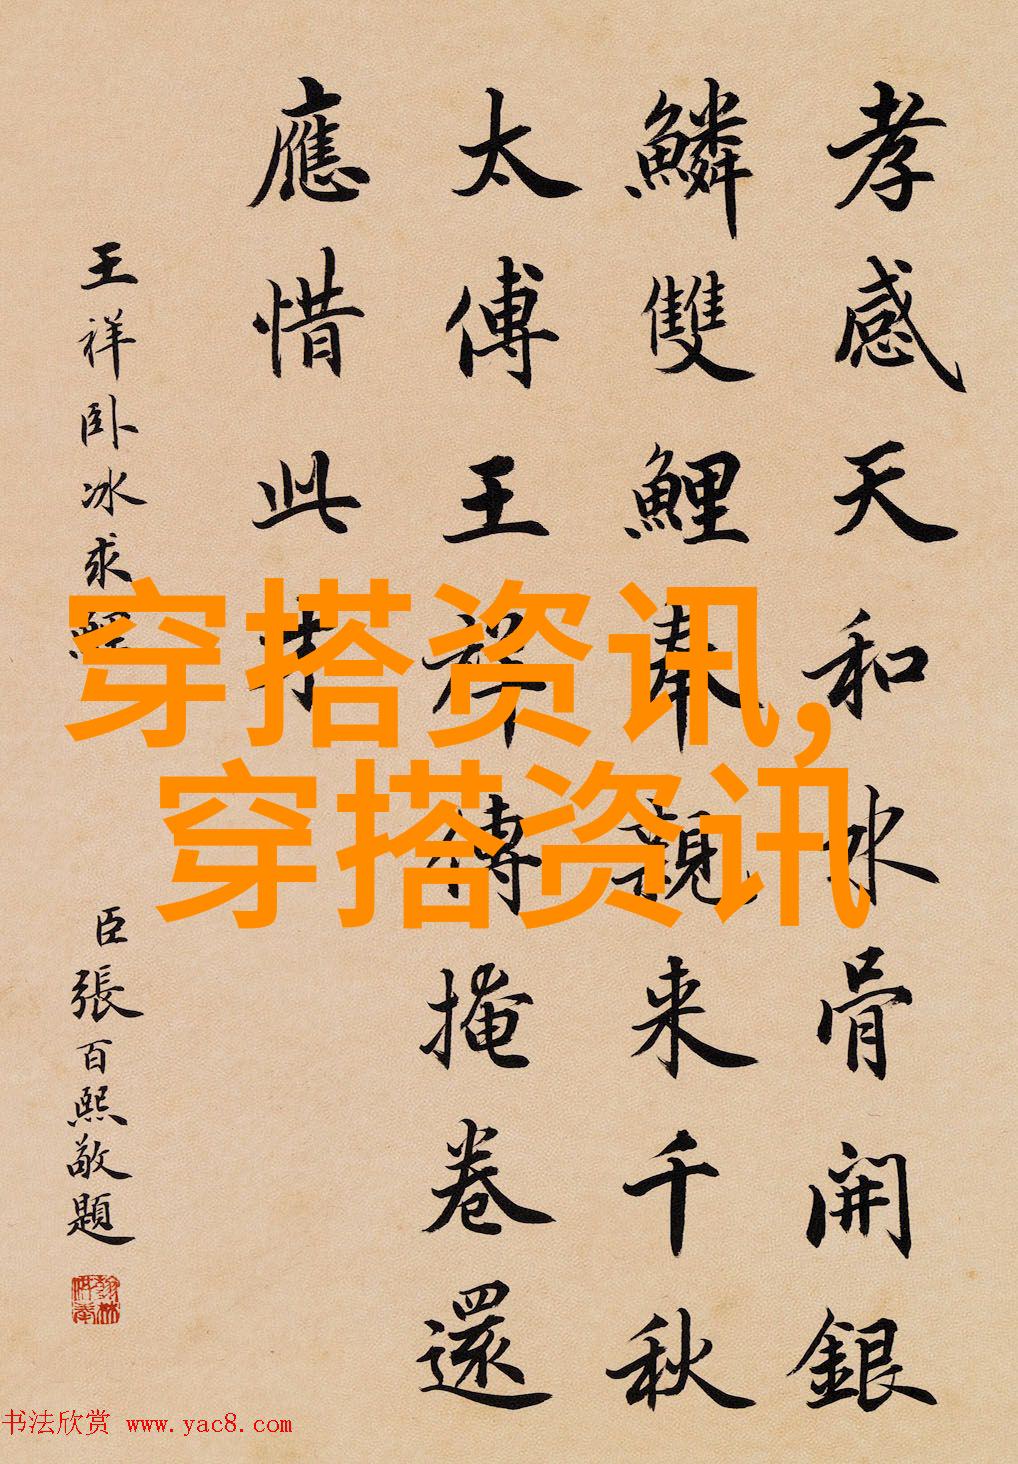 孝感天和冰骨開銀
鱗雙鯉奉親来千秋
太傅王祥傳掩卷還
應惜此
王祥卧冰求鯉
臣張百熙敬題
翰林供奉
穿搭资讯,
穿搭资讯
书法欣赏 www.yac8.com